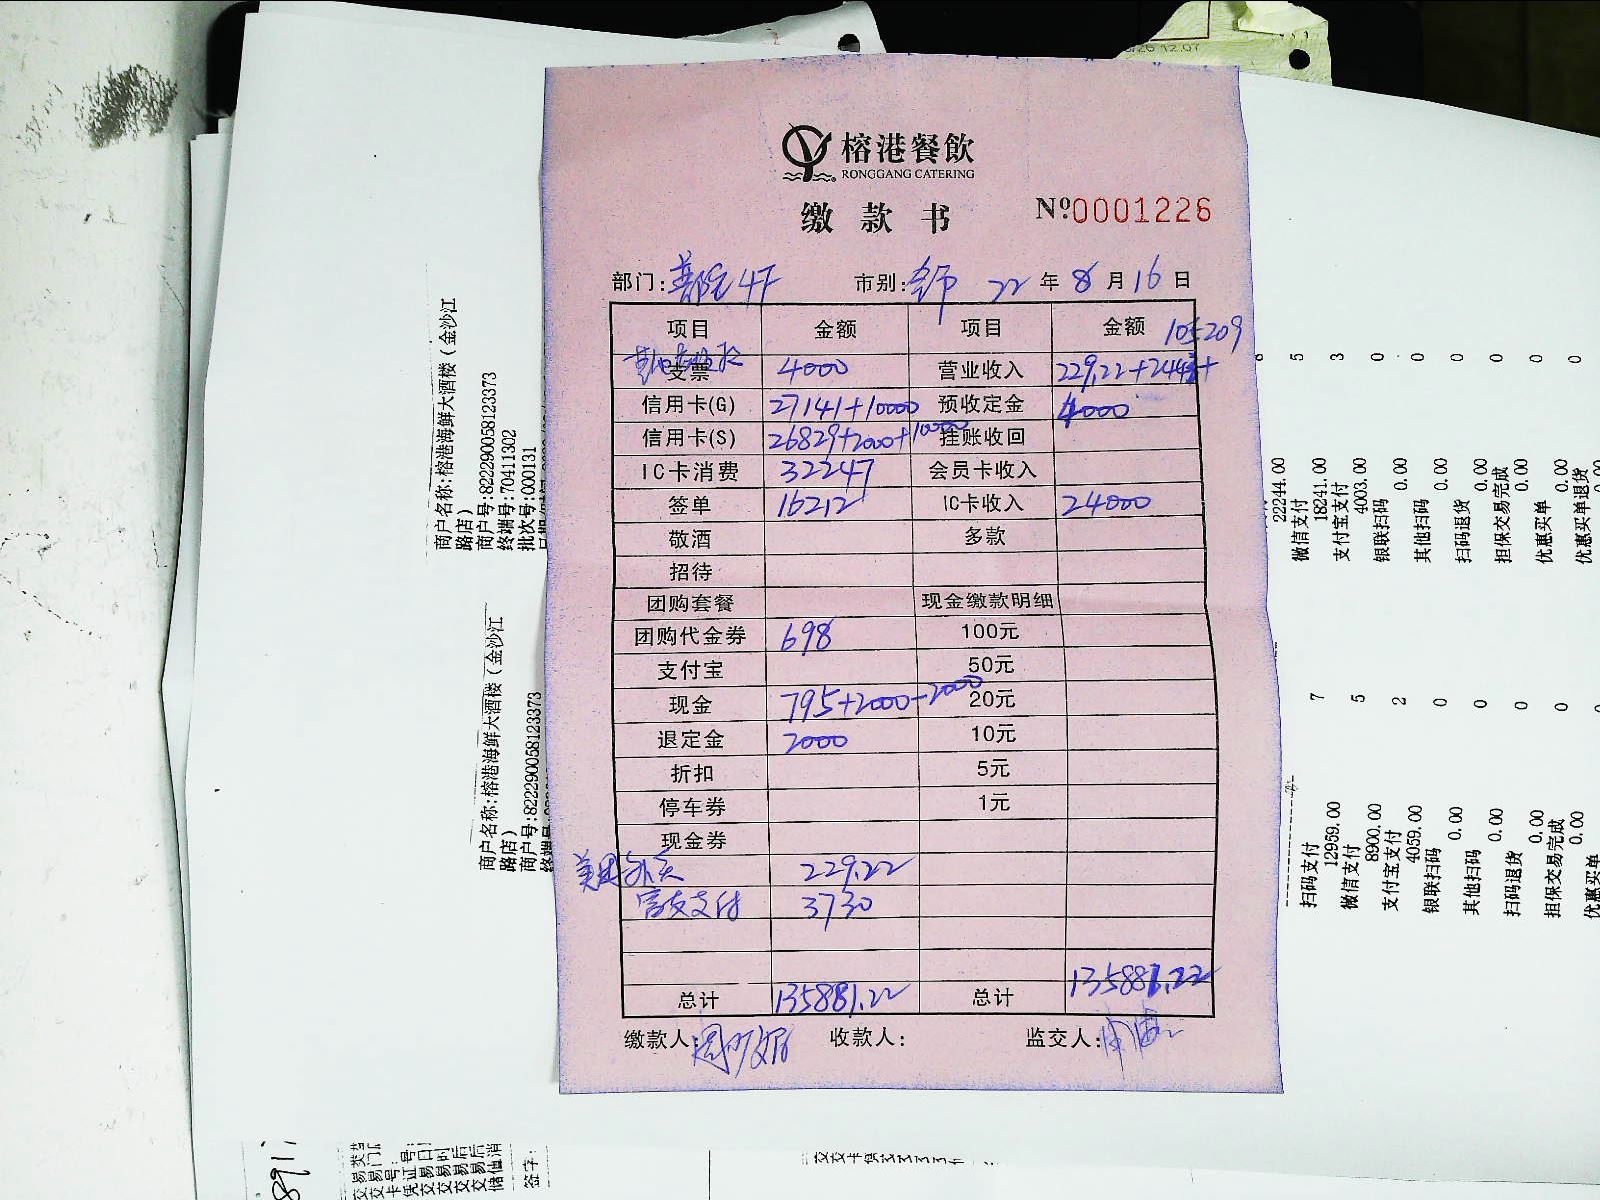 榕港餐飲
RONGGANG CATERING
缴款书
№0001226
部门: 4F 市别: 22年8月16日
项目 金额 项目 金额 105209
支票 4000 营业收入 229.22+2443+
信用卡(G) 27141+10000 预收定金 4000
信用卡(S) 26829+2000+10000 挂账收回
IC卡消费 32247 会员卡收入
签单 16212 IC卡收入 24000
敬酒 多款
招待
团购套餐 现金缴款明细
团购代金券 698 100元
支付宝 50元
现金 795+2000-2000 20元
退定金 2000 10元
折扣 5元
停车券 1元
现金券
美团外卖 229.22
富友支付 3730
总计 135881.22 总计 135881.22
缴款人: 收款人: 监交人:
商户名称:榕港海鲜大酒楼(金沙江
路店)
商户号:822290058123373
终端号:70411302
批次号:000131
商户名称:榕港海鲜大酒楼(金沙江
路店)
商户号:822290058123373
终端号:
6
22244.00
微信支付 5
18241.00
支付宝支付 3
4003.00
银联扫码 0
0.00
其他扫码 0
0.00
扫码退货 0
0.00
担保交易完成 0
0.00
优惠买单 0
0.00
优惠买单退货 0
扫码支付 7
12959.00
微信支付 5
8900.00
支付宝支付 2
4059.00
银联扫码 0
0.00
其他扫码 0
0.00
扫码退货 0
0.00
担保交易完成 0
0.00
优惠买单
签字: